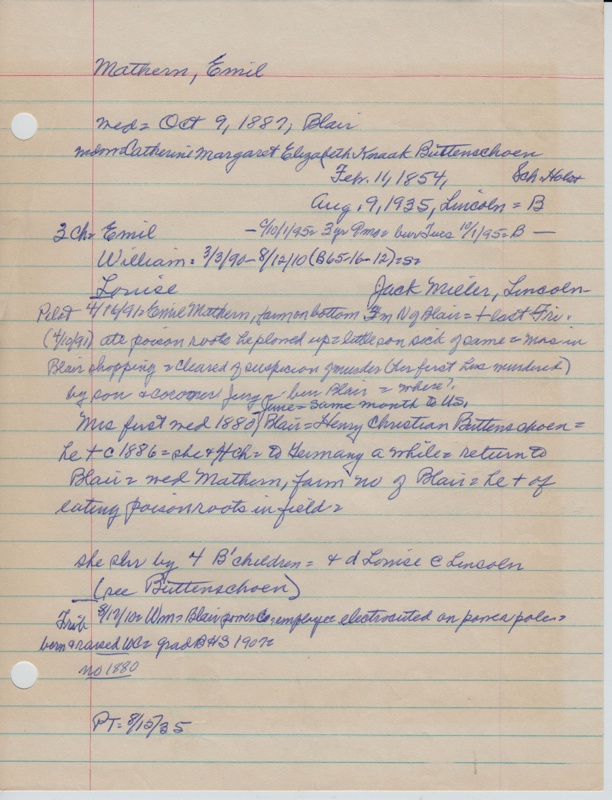 Mathern, Emil
wed = Oct 9, 1887, Blair
widow Catherine Margaret Elizabeth Knaak Buttenschoen
Feb. 11, 1854, Sch. Holst
Aug. 9, 1935, Lincoln = B
3 ch = Emil — 10/1/95 = 3 yr 9 mo = bur Tues 10/1/95 = B —
William = 3/3/90 - 8/12/10 (B65-16-12) = s =
Louise Jack Mieler, Lincoln
Pilot 4/16/91 = Emil Mathern, farm on bottom 3 m N of Blair = + last Fri.
(4/10/91) ate poison roots he plowed up = little son sick of same = Mrs in
Blair shopping = cleared of suspicion of murder (her first hus murdered)
by son & coroner jury = bur Blair = where?
June = same month to US.
Mrs first wed 1880 Blair = Henry Christian Buttenschoen =
he + c 1886 = she & 4 ch = to Germany a while = return to
Blair = wed Mathern, farm no of Blair = he + of
eating poison roots in field =
she sur by 4 B'children = & d Louise C Lincoln
(see Buttenschoen)
Trib 8/17/10 = Wm = Blair power Co. employee electrocuted on power pole =
born & raised WC = grad BHS 190
no 1880
PT = 8/15/35